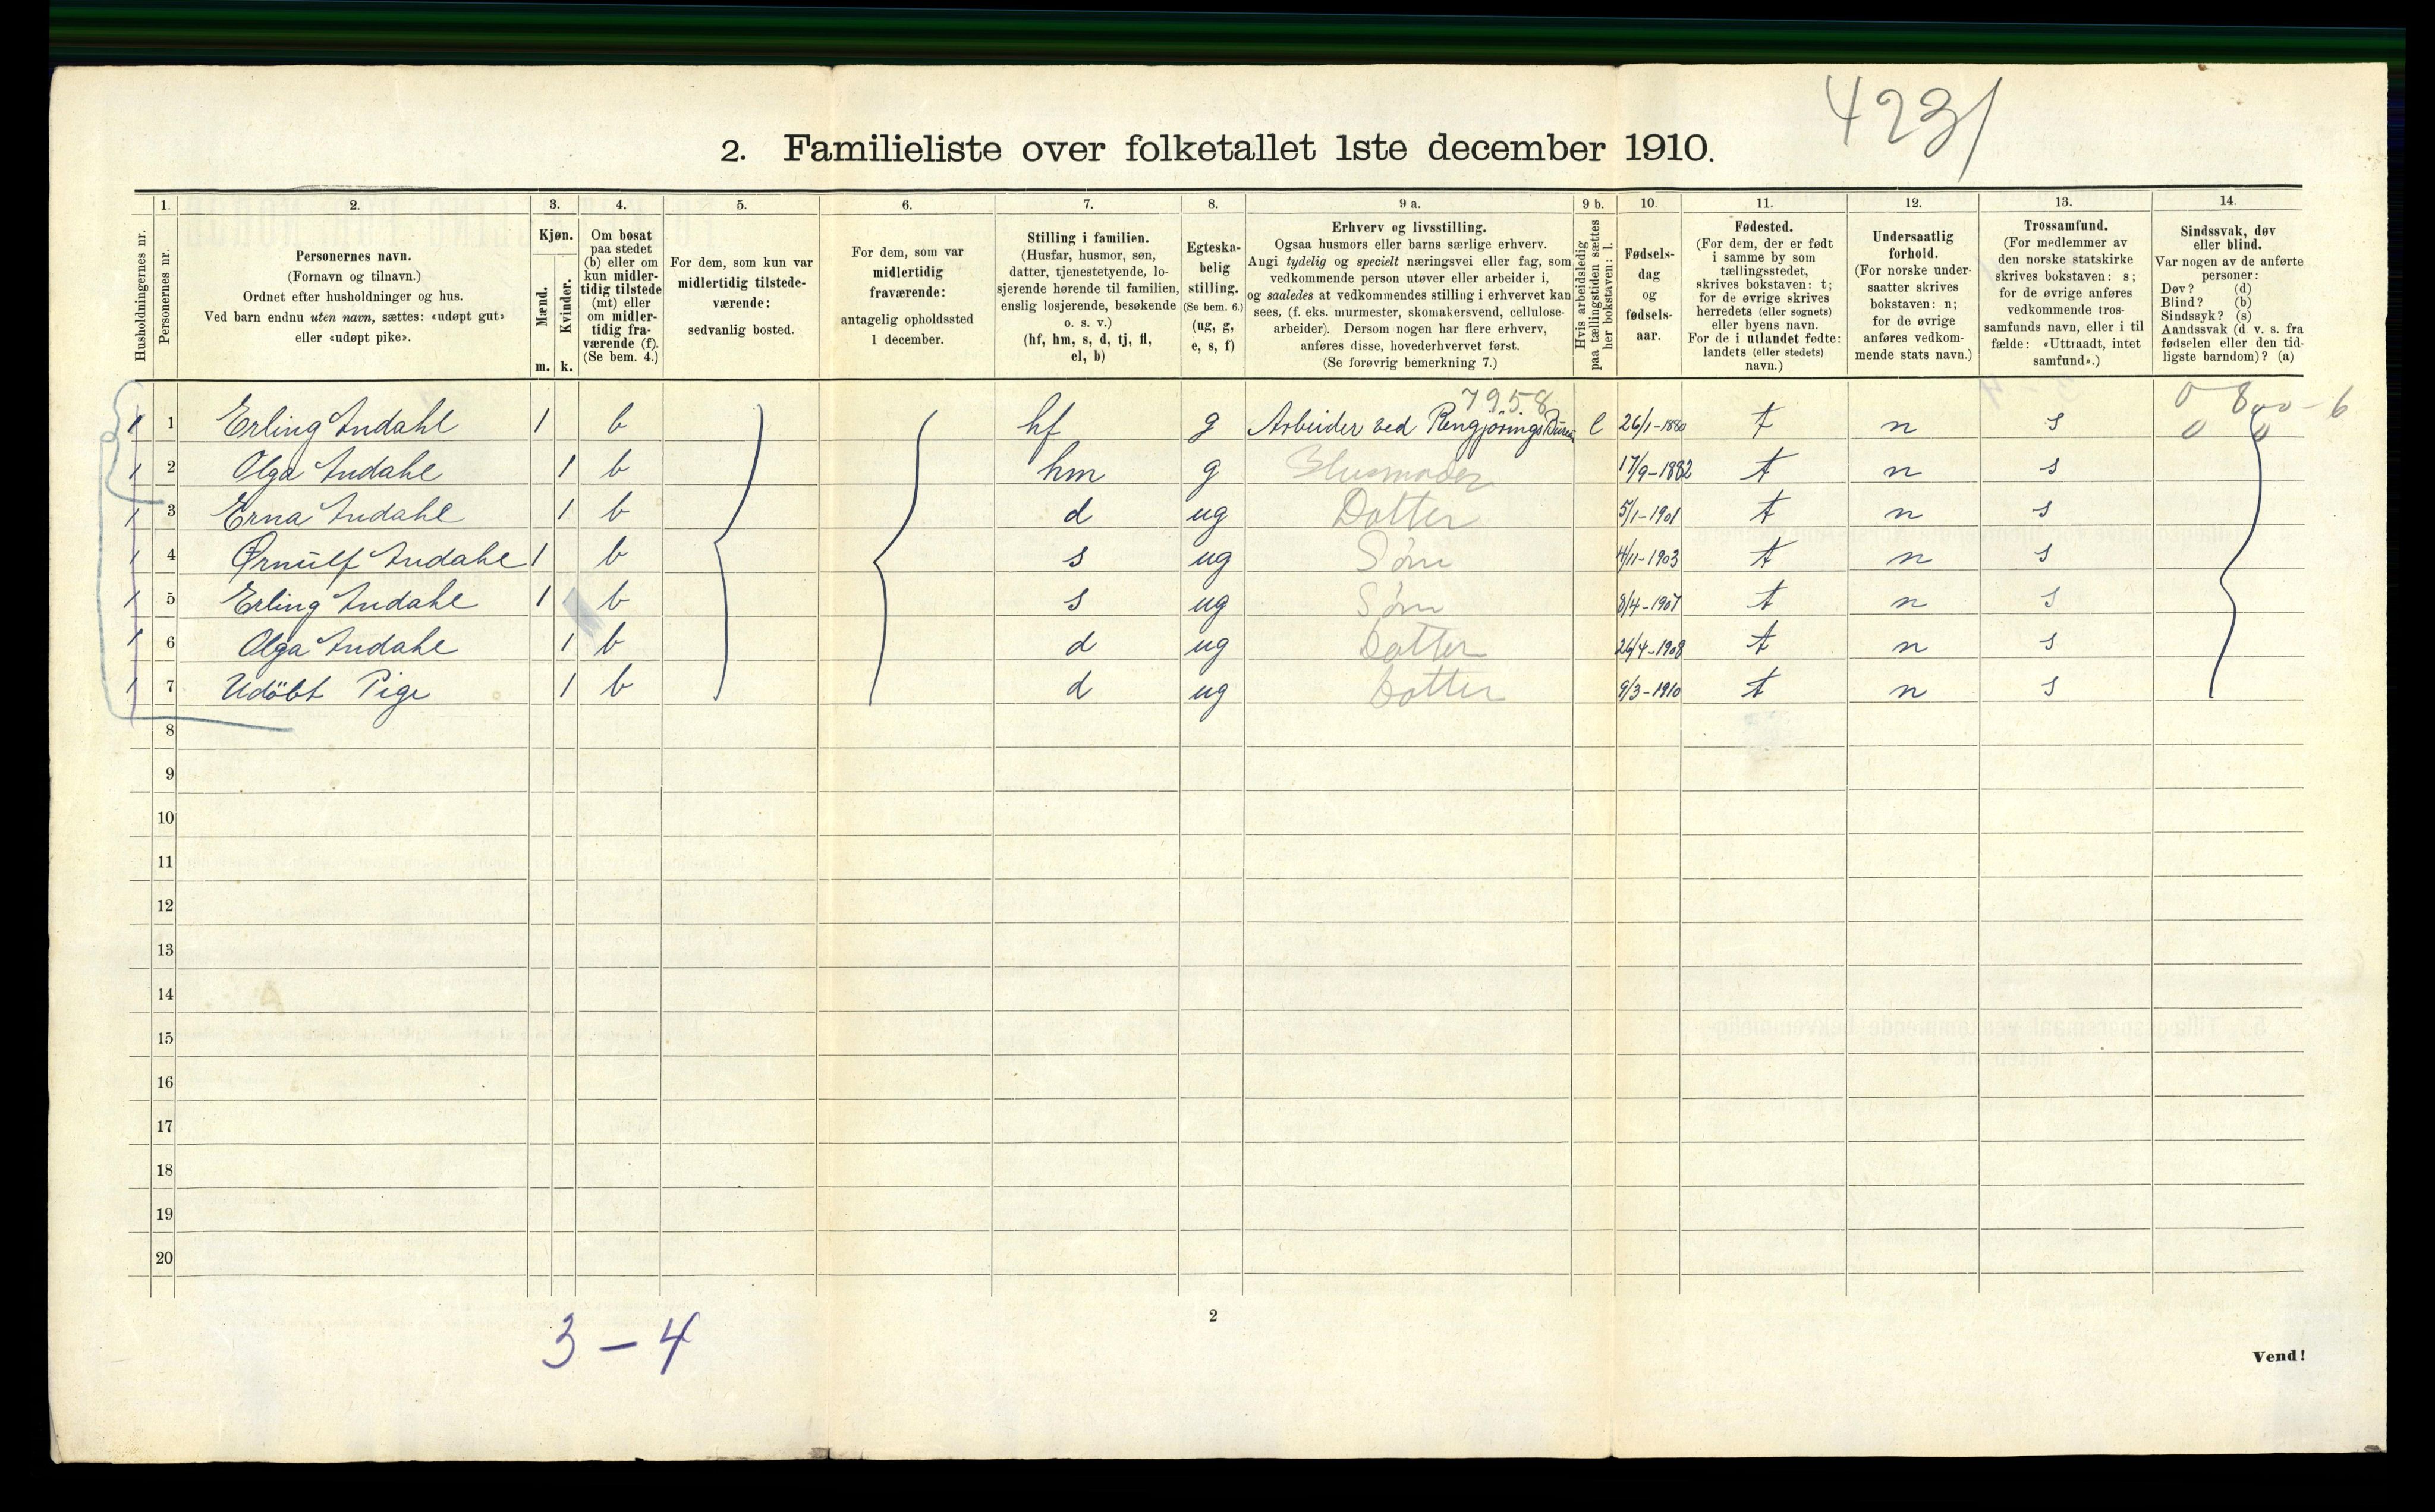 4231
2. Familieliste over folketallet 1ste december 1910.
1. 2. 3. 4. 5. 6. 7. 8. 9 a. 9 b. 10. 11. 12. 13. 14.
Husholdningernes nr.
Personernes nr.
Personernes navn.
(Fornavn og tilnavn.)
Ordnet efter husholdninger og hus.
Ved barn endnu uten navn, sættes: «udøpt gut»
eller «udøpt pike».
Kjøn.
Mænd.
Kvinder.
m. k.
Om bosat
paa stedet
(b) eller om
kun midler-
tidig tilstede
(mt) eller
om midler-
tidig fra-
værende (f).
(Se bem. 4.)
For dem, som kun var
midlertidig tilstede-
værende:
sedvanlig bosted.
For dem, som var
midlertidig
fraværende:
antagelig opholdssted
1 december.
Stilling i familien.
(Husfar, husmor, søn,
datter, tjenestetyende, lo-
sjerende hørende til familien,
enslig losjerende, besøkende
o. s. v.)
(hf, hm, s, d, tj, fl,
el, b)
Egteska-
belig
stilling.
(Se bem. 6.)
(ug, g,
e, s, f)
Erhverv og livsstilling.
Ogsaa husmors eller barns særlige erhverv.
Angi tydelig og specielt næringsvei eller fag, som
vedkommende person utøver eller arbeider i,
og saaledes at vedkommendes stilling i erhvervet kan
sees, (f. eks. murmester, skomakersvend, cellulose-
arbeider). Dersom nogen har flere erhverv,
anføres disse, hovederhvervet først.
(Se forøvrig bemerkning 7.)
Hvis arbeidsledig
paa tællingstiden sættes
her bokstaven: l.
Fødsels-
dag
og
fødsels-
aar.
Fødested.
(For dem, der er født
i samme by som
tællingsstedet,
skrives bokstaven: t;
for de øvrige skrives
herredets (eller sognets)
eller byens navn.
For de i utlandet fødte:
landets (eller stedets)
navn.)
Undersaatlig
forhold.
(For norske under-
saatter skrives
bokstaven: n;
for de øvrige
anføres vedkom-
mende stats navn.)
Trossamfund.
(For medlemmer av
den norske statskirke
skrives bokstaven: s;
for de øvrige anføres
vedkommende tros-
samfunds navn, eller i til
fælde: «Uttraadt, intet
samfund».)
Sindssvak, døv
eller blind.
Var nogen av de anførte
personer:
Døv? (d)
Blind? (b)
Sindssyk? (s)
Aandssvak (d. v. s. fra
fødselen eller den tid-
ligste barndom)? (a)
7958 0 800-6
1 1 Erling Indahl 1 b hf g Arbeider ved Rengjørings Bureau l 26/1-1880 t n s 0 0
1 2 Olga Indahl 1 b hm g Husmoder 17/9-1882 t n s
1 3 Erna Indahl 1 b d ug Datter 5/1-1901 t n s
1 4 Ørnulf Indahl 1 b s ug Søn 4/11-1903 t n s
1 5 Erling Indahl 1 b s ug Søn 8/4-1907 t n s
1 6 Olga Indahl 1 b d ug Datter 26/4-1908 t n s
1 7 Udöbt Pige 1 b d ug Datter 9/3-1910 t n s
8
9
10
11
12
13
14
15
16
17
18
19
20
2
3-4
Vend!